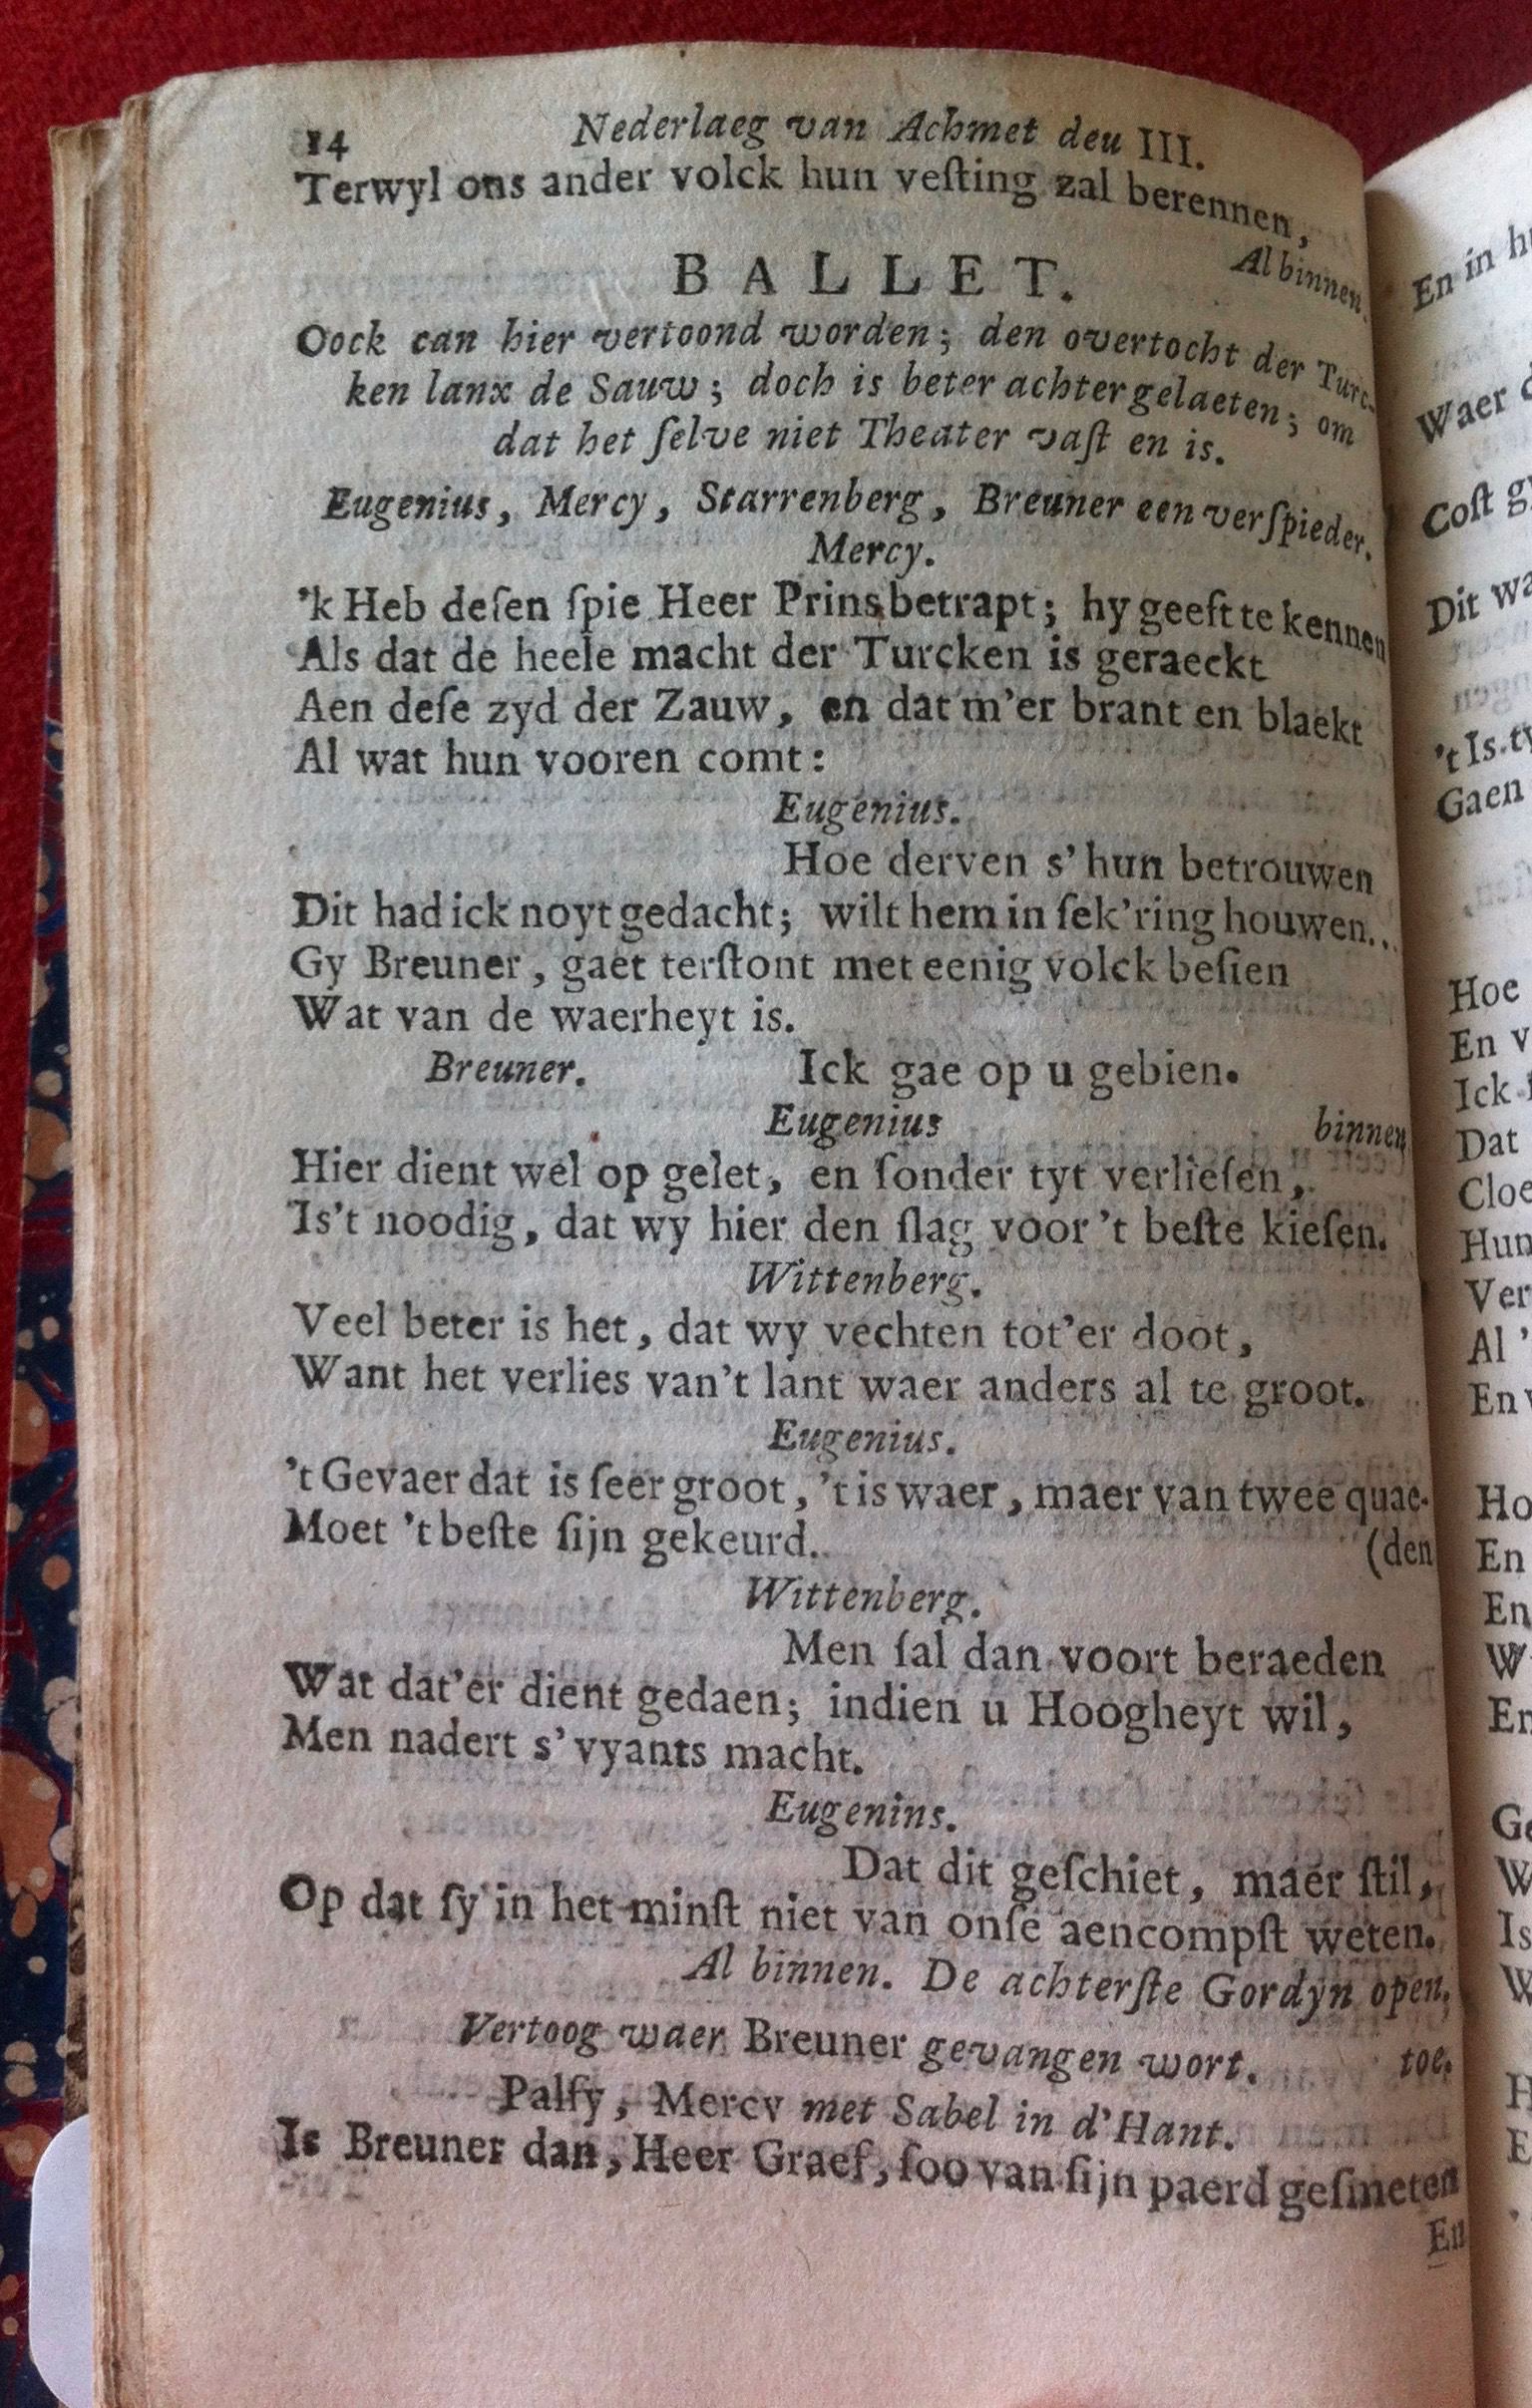 14 Nederlaeg van Achmet deu III.
Terwyl ons ander volck hun veſting zal berennen,
Al binnen.
BALLET.
Oock can hier vertoond worden; den overtocht der Turc-
ken lanx de Sauw; doch is beter achtergelaeten; om
dat het ſelve niet Theater vaſt en is.
Eugenius, Mercy, Starrenberg, Breuner een verſpieder.
Mercy.
'k Heb deſen ſpie Heer Prins betrapt; hy geeft te kennen
Als dat de heele macht der Turcken is geraeckt
Aen deſe zyd der Zauw, en dat m'er brant en blaekt
Al wat hun vooren comt:
Eugenius.
Hoe derven s' hun betrouwen
Dit had ick noyt gedacht; wilt hem in ſek'ring houwen...
Gy Breuner, gaet terſtont met eenig volck beſien
Wat van de waerheyt is.
Breuner. Ick gae op u gebien.
Eugenius binnen
Hier dient wel op gelet, en ſonder tyt verlieſen,
Is't noodig, dat wy hier den ſlag voor 't beſte kieſen.
Wittenberg.
Veel beter is het, dat wy vechten tot'er doot,
Want het verlies van't lant waer anders al te groot.
Eugenius.
't Gevaer dat is ſeer groot, 't is waer, maer van twee quae-
Moet 't beſte ſijn gekeurd. (den
Wittenberg.
Men ſal dan voort beraeden
Wat dat'er dient gedaen; indien u Hoogheyt wil,
Men nadert s' vyants macht.
Eugenins.
Dat dit geſchiet, maer ſtil,
Op dat ſy in het minſt niet van onſe aencompſt weten.
Al binnen. De achterſte Gordyn open.
Vertoog waer Breuner gevangen wort. toe.
Palfy, Mercy met Sabel in d'Hant.
Is Breuner dan, Heer Graef, ſoo van ſijn paerd geſmeten
En
En in
Waer
Coſt
Dit
't Is
Gaen
Hoe
En
Ick
Dat
Hun
Ver
Al
En
Ho
En
En